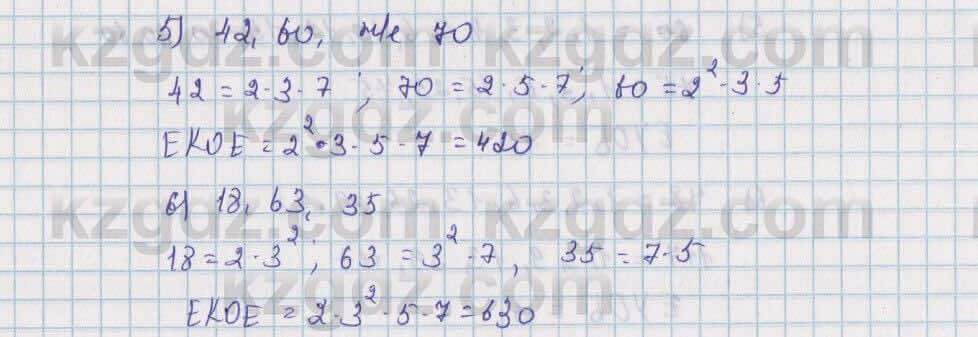 5) 42, 60, же 70
42 = 2·3·7 ; 70 = 2·5·7; 60 = 2²·3·5
ЕКОЕ = 2²·3·5·7 = 420
6) 18, 63, 35
18 = 2·3² ; 63 = 3²·7, 35 = 7·5
ЕКОЕ = 2·3²·5·7 = 630
kzgdz.com
kzgdz.com
kzgdz.com
kzgdz.com